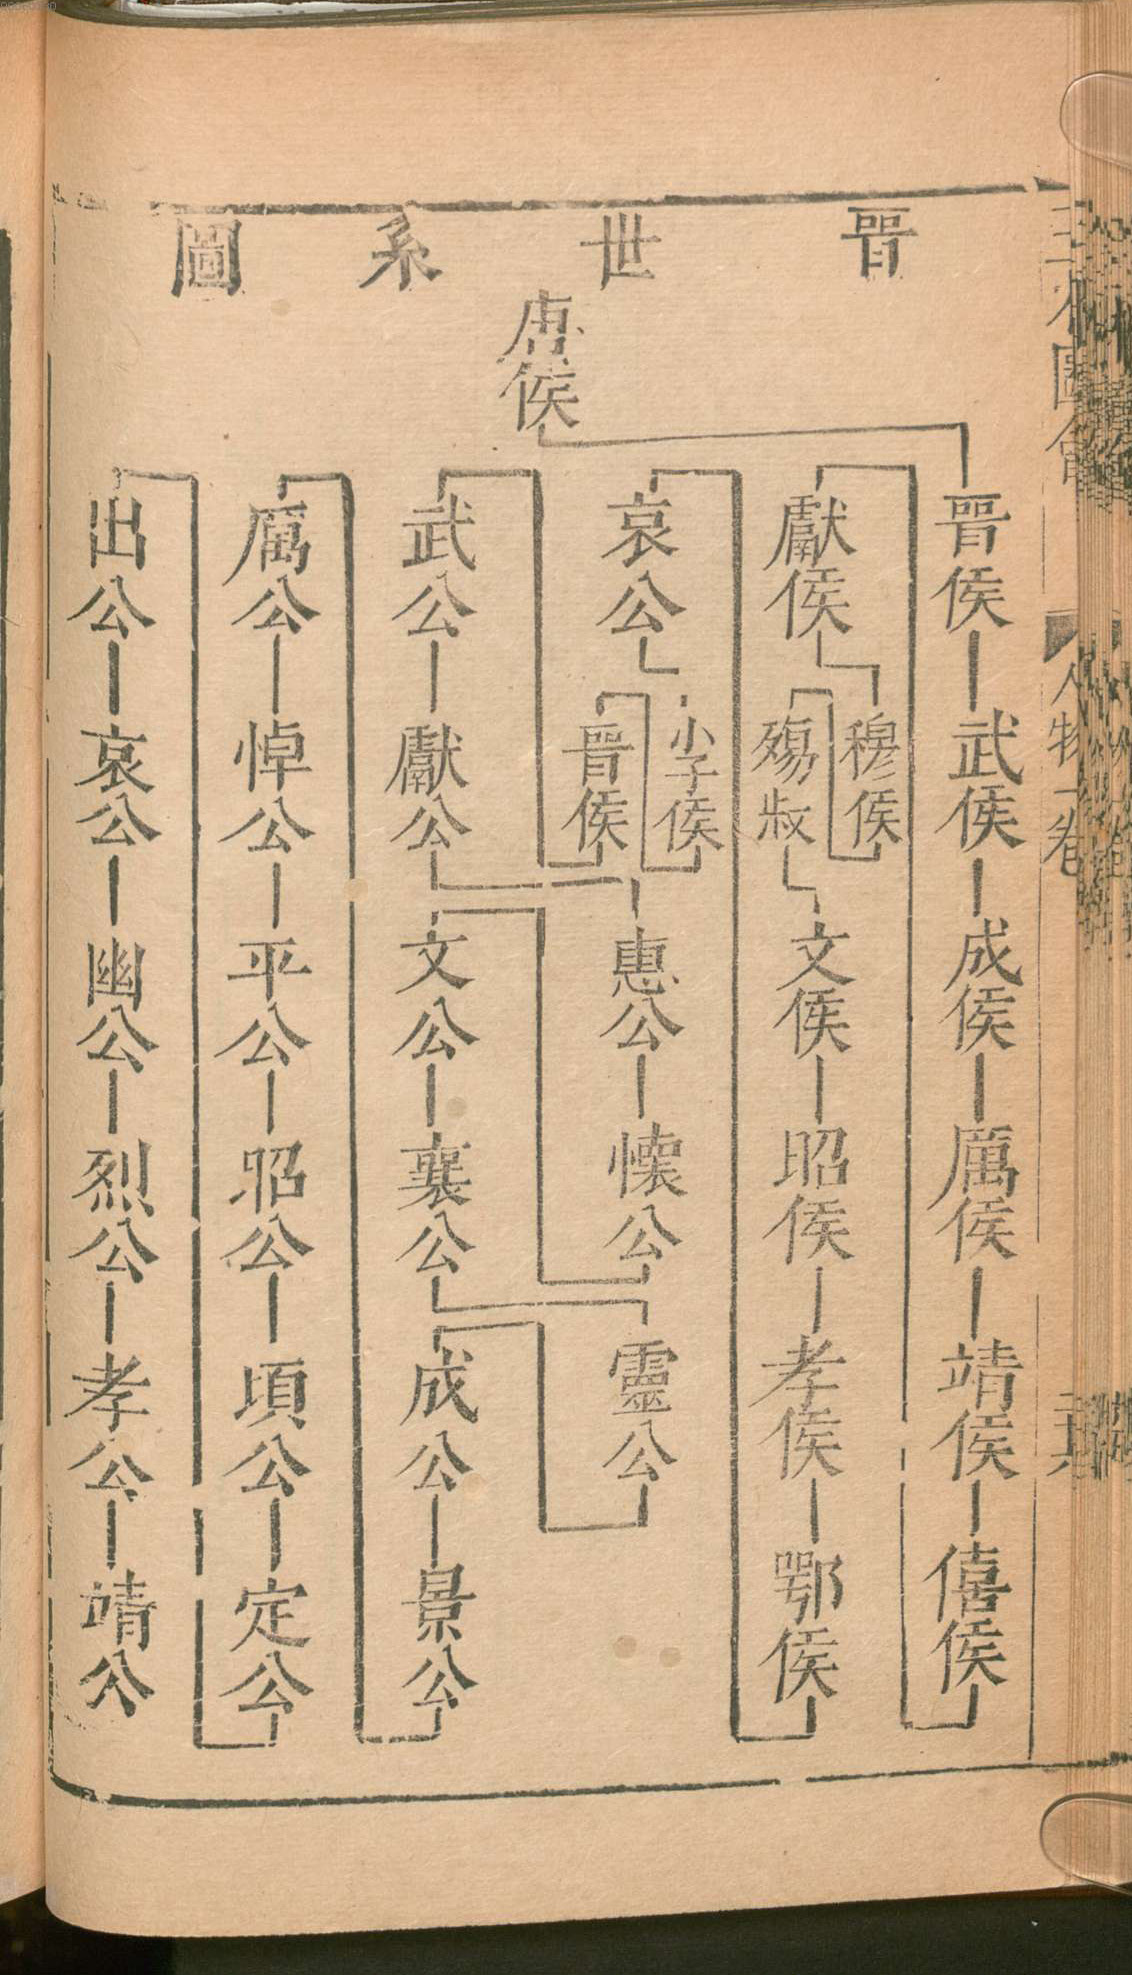 晉世系圖
唐侯
晉侯
武侯
成侯
厲侯
靖侯
僖侯
獻侯
穆侯
殤叔
文侯
昭侯
孝侯
鄂侯
哀公
小子侯
晉侯
武公
獻公
惠公
懷公
文公
襄公
靈公
成公
景公
厲公
悼公
平公
昭公
頃公
定公
出公
哀公
幽公
烈公
孝公
靖公
人物一卷